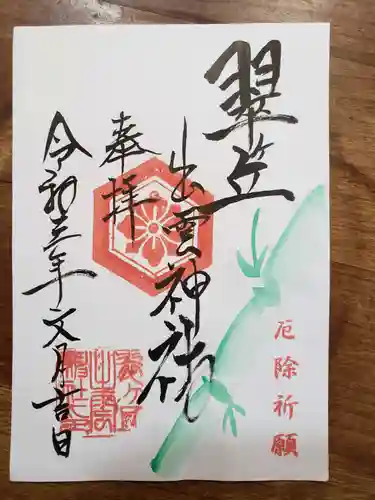 翠笠
厄除祈願
出雲神社
奉拝
令和三年文月吉日